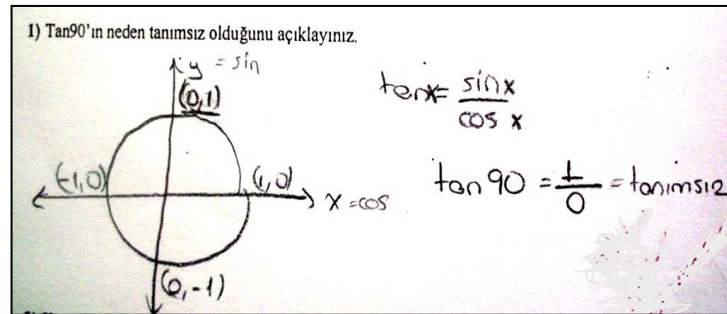 1) Tan90'ın neden tanımsız olduğunu açıklayınız.
y = sin
(0,1)
(-1,0)
(1,0)
x = cos
(0,-1)
tanx = sinx / cos x
tan 90 = 1/0 = tanımsız